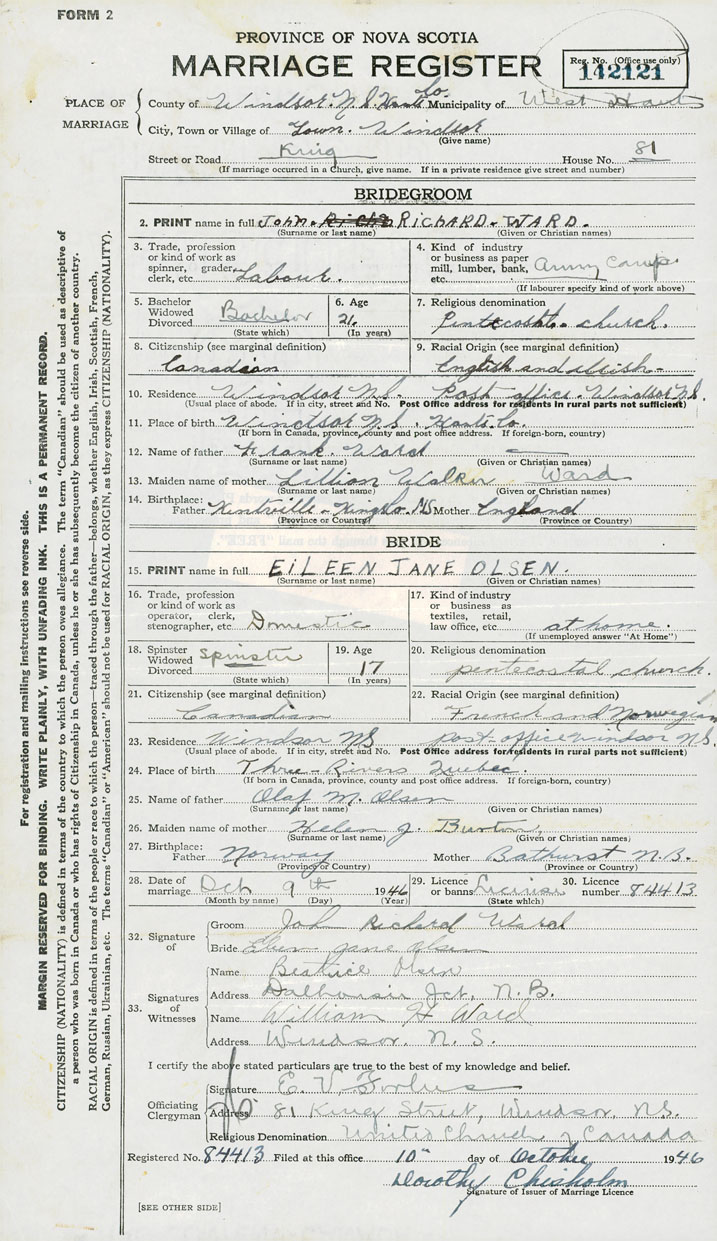 FORM 2
PROVINCE OF NOVA SCOTIA
MARRIAGE REGISTER
Reg. No. (Office use only)
142121
PLACE OF MARRIAGE
County of Windsor. N.S. Hants Co. Municipality of West Hants
City, Town or Village of Town. Windsor
(Give name)
Street or Road King House No. 81
(If marriage occurred in a Church, give name. If in a private residence give street and number)
BRIDEGROOM
2. PRINT name in full JOHN. RICHARD. WARD.
(Surname or last name) (Given or Christian names)
3. Trade, profession or kind of work as spinner, grader, clerk, etc. Labour.
4. Kind of industry or business as paper mill, lumber, bank, Army Camp
(If labourer specify kind of work above)
5. Bachelor Widowed Divorced Bachelor
(State which)
6. Age 21.
(In years)
7. Religious denomination Pentecostal. church.
8. Citizenship (see marginal definition) Canadian
9. Racial Origin (see marginal definition) English and Irish-
10. Residence Windsor N.S. Post office. Windsor N.S.
(Usual place of abode. If in city, street and No. Post Office address for residents in rural parts not sufficient)
11. Place of birth Windsor N.S. Hants Co.
(If born in Canada, province, county and post office address. If foreign-born, country)
12. Name of father Frank. Ward
(Surname or last name) (Given or Christian names)
13. Maiden name of mother Lillian Walker Ward
(Surname or last name) (Given or Christian names)
14. Birthplace: Father Kentville - Kings Co. N.S Mother England
(Province or Country) (Province or Country)
BRIDE
15. PRINT name in full EILEEN JANE OLSEN.
(Surname or last name) (Given or Christian names)
16. Trade, profession or kind of work as operator, clerk, stenographer, etc. Domestic
17. Kind of industry or business as textiles, retail, law office, etc. at home.
(If unemployed answer "At Home")
18. Spinster Widowed Divorced Spinster
(State which)
19. Age 17
(In years)
20. Religious denomination pentecostal church.
21. Citizenship (see marginal definition) Canadian
22. Racial Origin (see marginal definition) French and Norwegian
23. Residence Windsor NS post-office windsor N.S.
(Usual place of abode. If in city, street and No. Post Office address for residents in rural parts not sufficient)
24. Place of birth Three - Rivers Quebec.
(If born in Canada, province, county and post office address. If foreign-born, country)
25. Name of father Olaf M. Olsen
(Surname or last name) (Given or Christian names)
26. Maiden name of mother Helen J. Burton,
(Surname or last name) (Given or Christian names)
27. Birthplace: Father Norway Mother Bathurst N.B.
(Province or Country) (Province or Country)
28. Date of marriage Oct 9th 1946
(Month by name) (Day) (Year)
29. Licence or banns License
(State which)
30. Licence number 84413
32. Signature of
Groom John Richard Ward
Bride Eileen Jane Olsen
33. Signatures of Witnesses
Name Beatrice Olsen
Address Dalhousie Jct, N.B.
Name William H Ward
Address Windsor. N.S.
I certify the above stated particulars are true to the best of my knowledge and belief.
Officiating Clergyman
Signature E. V. Forbes
Address 81 King Street, Windsor. N.S.
Religious Denomination United Church of Canada
Registered No. 84413 Filed at this office 10th day of October 1946
Dorothy Chisholm
Signature of Issuer of Marriage Licence
[SEE OTHER SIDE]
For registration and mailing instructions see reverse side.
MARGIN RESERVED FOR BINDING. WRITE PLAINLY, WITH UNFADING INK. THIS IS A PERMANENT RECORD.
CITIZENSHIP (NATIONALITY) is defined in terms of the country to which the person owes allegiance. The term "Canadian" should be used as descriptive of
a person who was born in Canada or who has rights of Citizenship in Canada, unless he or she has subsequently become the citizen of another country.
RACIAL ORIGIN is defined in terms of the people or race to which the person—traced through the father—belongs, whether English, Irish, Scottish, French,
German, Russian, Ukrainian, etc. The terms "Canadian" or "American" should not be used for RACIAL ORIGIN, as they express CITIZENSHIP (NATIONALITY).